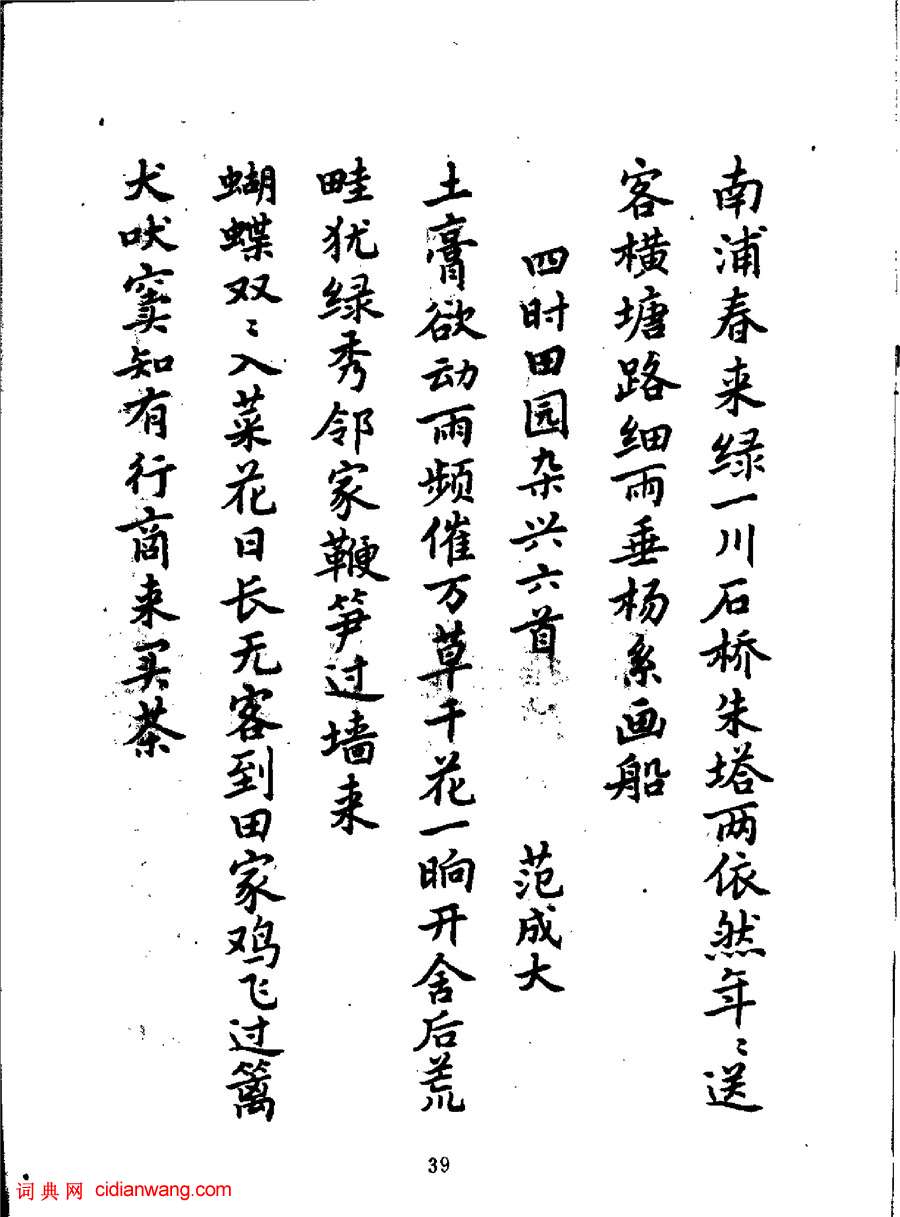 南浦春来绿一川石桥朱塔两依然年〻送
客横塘路细雨垂杨系画船
四时田园杂兴六首 范成大
土膏欲动雨频催万草千花一晌开舍后荒
畦犹绿秀邻家鞭笋过墙来
蝴蝶双〻入菜花日长无客到田家鸡飞过篱
犬吠窦知有行商来买茶
39
词典网 cidianwang.com